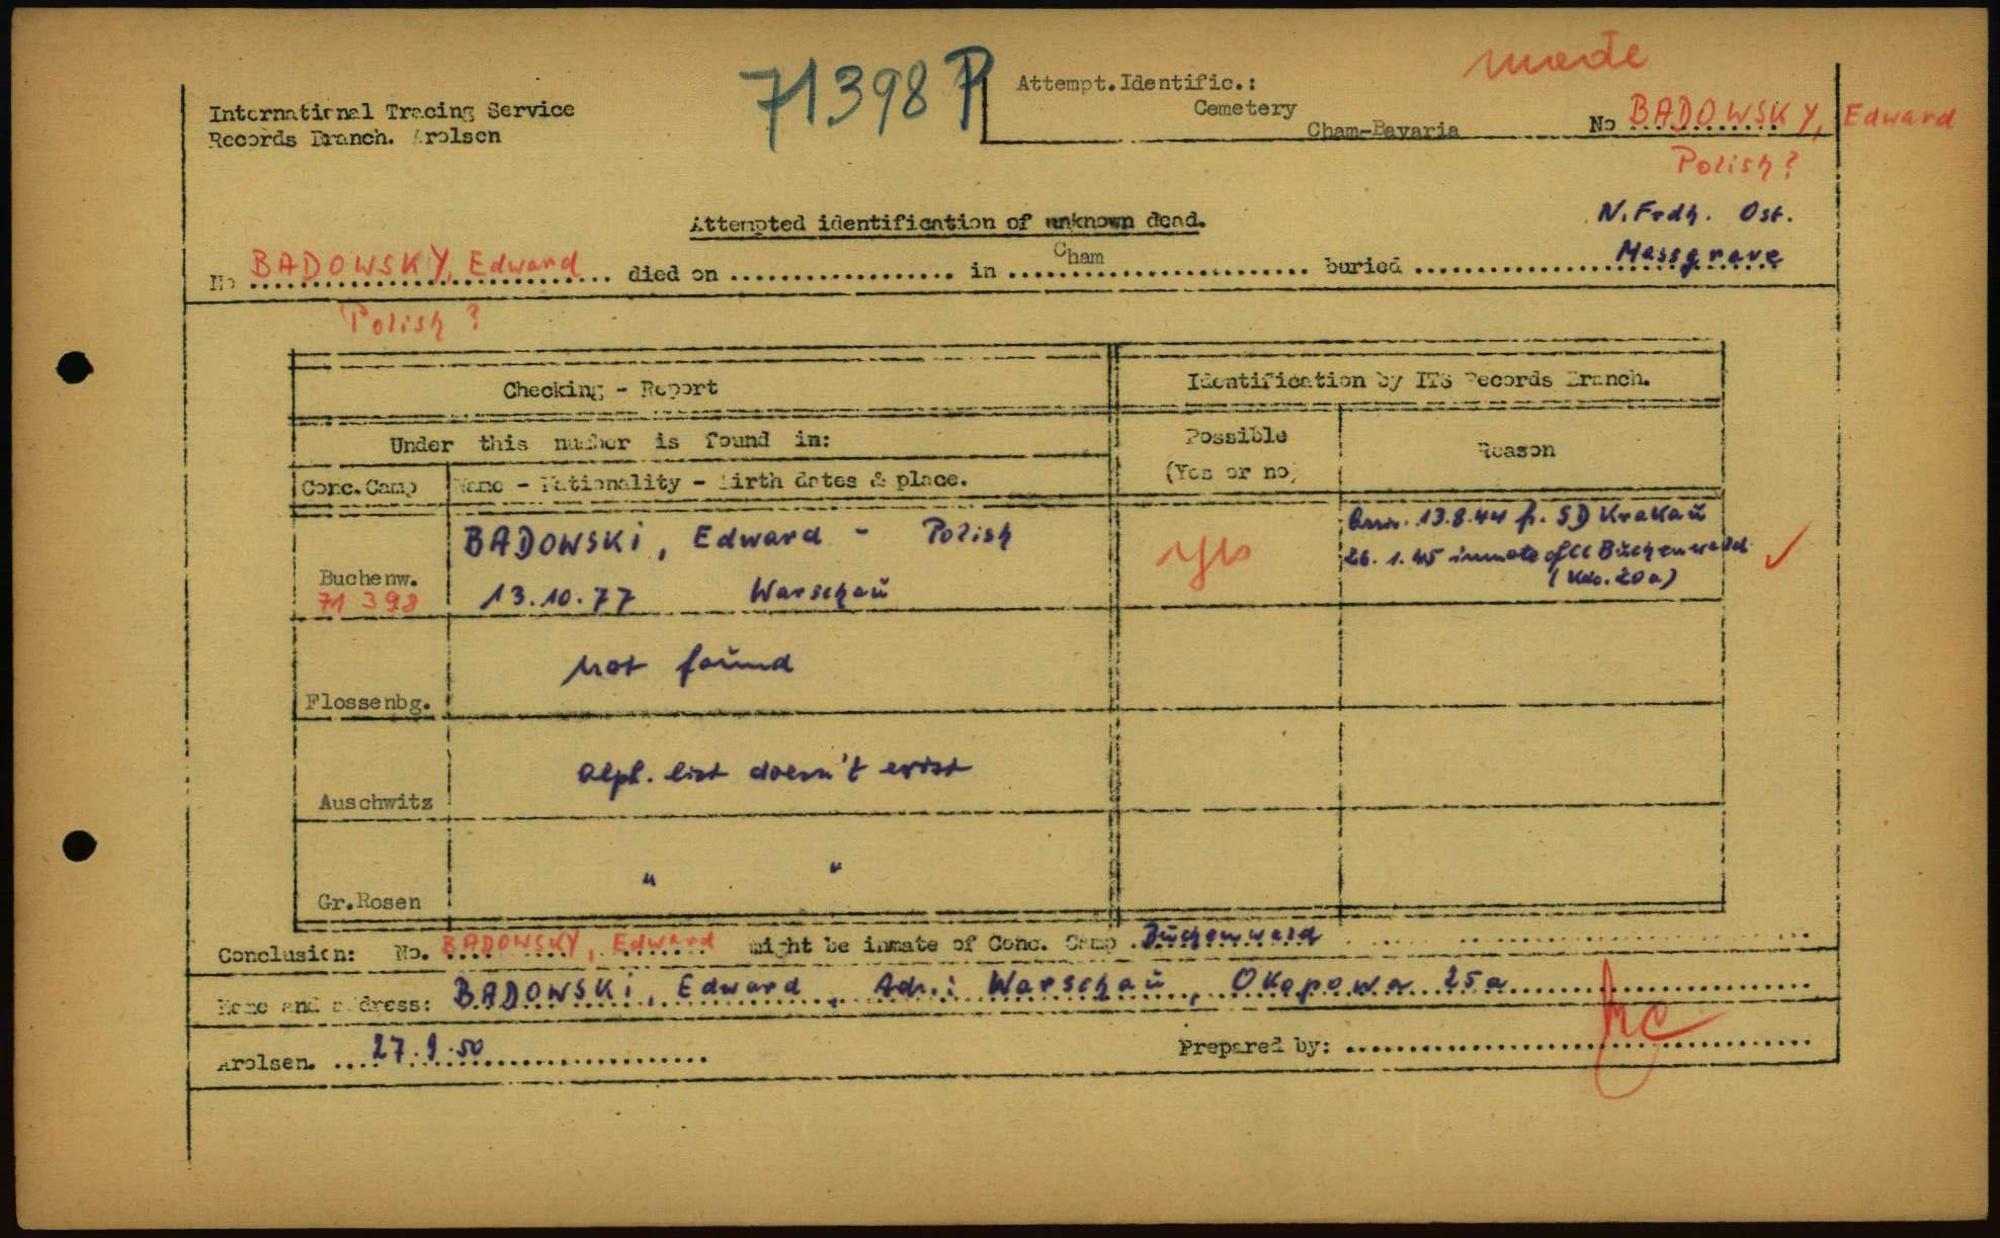 71398 P
made
International Tracing Service
Records Branch. Arolsen
Attempt.Identific.:
Cemetery
Cham-Bavaria No BADOWSKY, Edward
Polish?
Attempted identification of unknown dead.
N. Frdh. Ost.
No BADOWSKY, Edward died on .................... in Cham buried Massgrave
Polish ?
Checking - Report
Identification by ITS Records Branch.
Under this number is found in:
Possible
(Yes or no)
Reason
Conc.Camp Name - Nationality - Birth dates & place.
Buchenw.
71 398
BADOWSKi, Edward - Polish
13.10.77 Warschaŭ
yes
arr. 13.8.44 f. SD Krakaŭ
26. 1. 45 inmate of CC Bŭchenwald
(Kdo. 20a)
Flossenbg.
not foŭnd
Auschwitz
alph. list doesn't exist
Gr.Rosen
" "
Conclusion: No. BADOWSKY, Edward might be inmate of Conc. Camp Bŭchenwald
Name and address: BADOWSKi, Edward, Adr.: Warschaŭ, Okopowa 25a
Arolsen. 27.9.50
Prepared by: